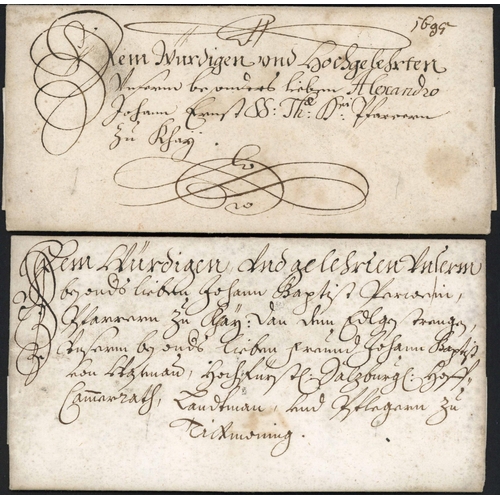 1695
Dem Würdigen und Hochgelehrten
Unserm besonders lieben Alexandro
Johann Ernst SS. Th. Dri Pfarrern
zu Khay.
Dem Würdigen, Und gelehrten Unserm
besonds lieben Johann Baptist
Pfarrern zu Kay: dan dem Edlgestrengen,
Unserm besonds lieben Freund Johann Baptist
von Hochfürstl. Salzburgl. Hoff
Cammerrath, und Pflegern zu
Titmoning.